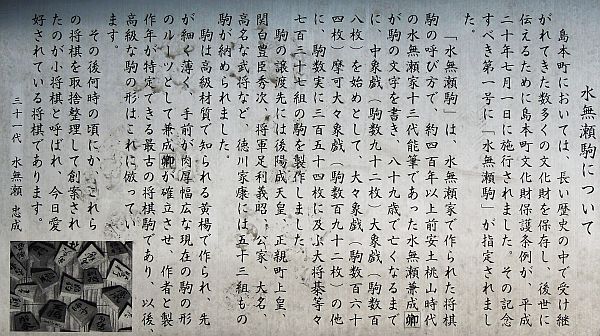 水無瀬駒について
島本町においては、長い歴史の中で受け継
がれてきた数多くの文化財を保存し、後世に
伝えるために島本町文化財保護条例が、平成
二十年七月一日に施行されました。その記念
すべき第一号に「水無瀬駒」が指定されまし
た。
「水無瀬駒」は、水無瀬家で作られた将棋
駒の呼び方で、約四百年以上前安土桃山時代
の水無瀬家十三代能筆であった水無瀬兼成卿
が駒の文字を書き、八十九歳で亡くなるまで
に、中象戯(駒数九十二枚)大象戯(駒数百
八枚)を始めとして、大々象戯(駒数百六十
四枚)摩可大々象戯(駒数百九十二枚)の他
に、駒数実に三百五十四枚に及ぶ大将棊等々
七百三十七組の駒を製作しました。
駒の譲渡先には後陽成天皇、正親町上皇、
関白豊臣秀次、将軍足利義昭、公家、大名、
高名な武将など、徳川家康には五十三組もの
駒が納められました。
駒は高級材質で知られる黄楊で作られ、先
が細く薄く、手前が肉厚幅広な現在の駒の形
のルーツとして兼成卿が確立させ、作者と製
作年が特定できる最古の将棋駒であり、以後
高級な駒の形はこれに倣ってい
ます。
その後何時の頃にか、これら
の将棋を取捨整理して創案され
たのが小将棋と呼ばれ、今日愛
好されている将棋であります。
三十一代 水無瀬 忠成